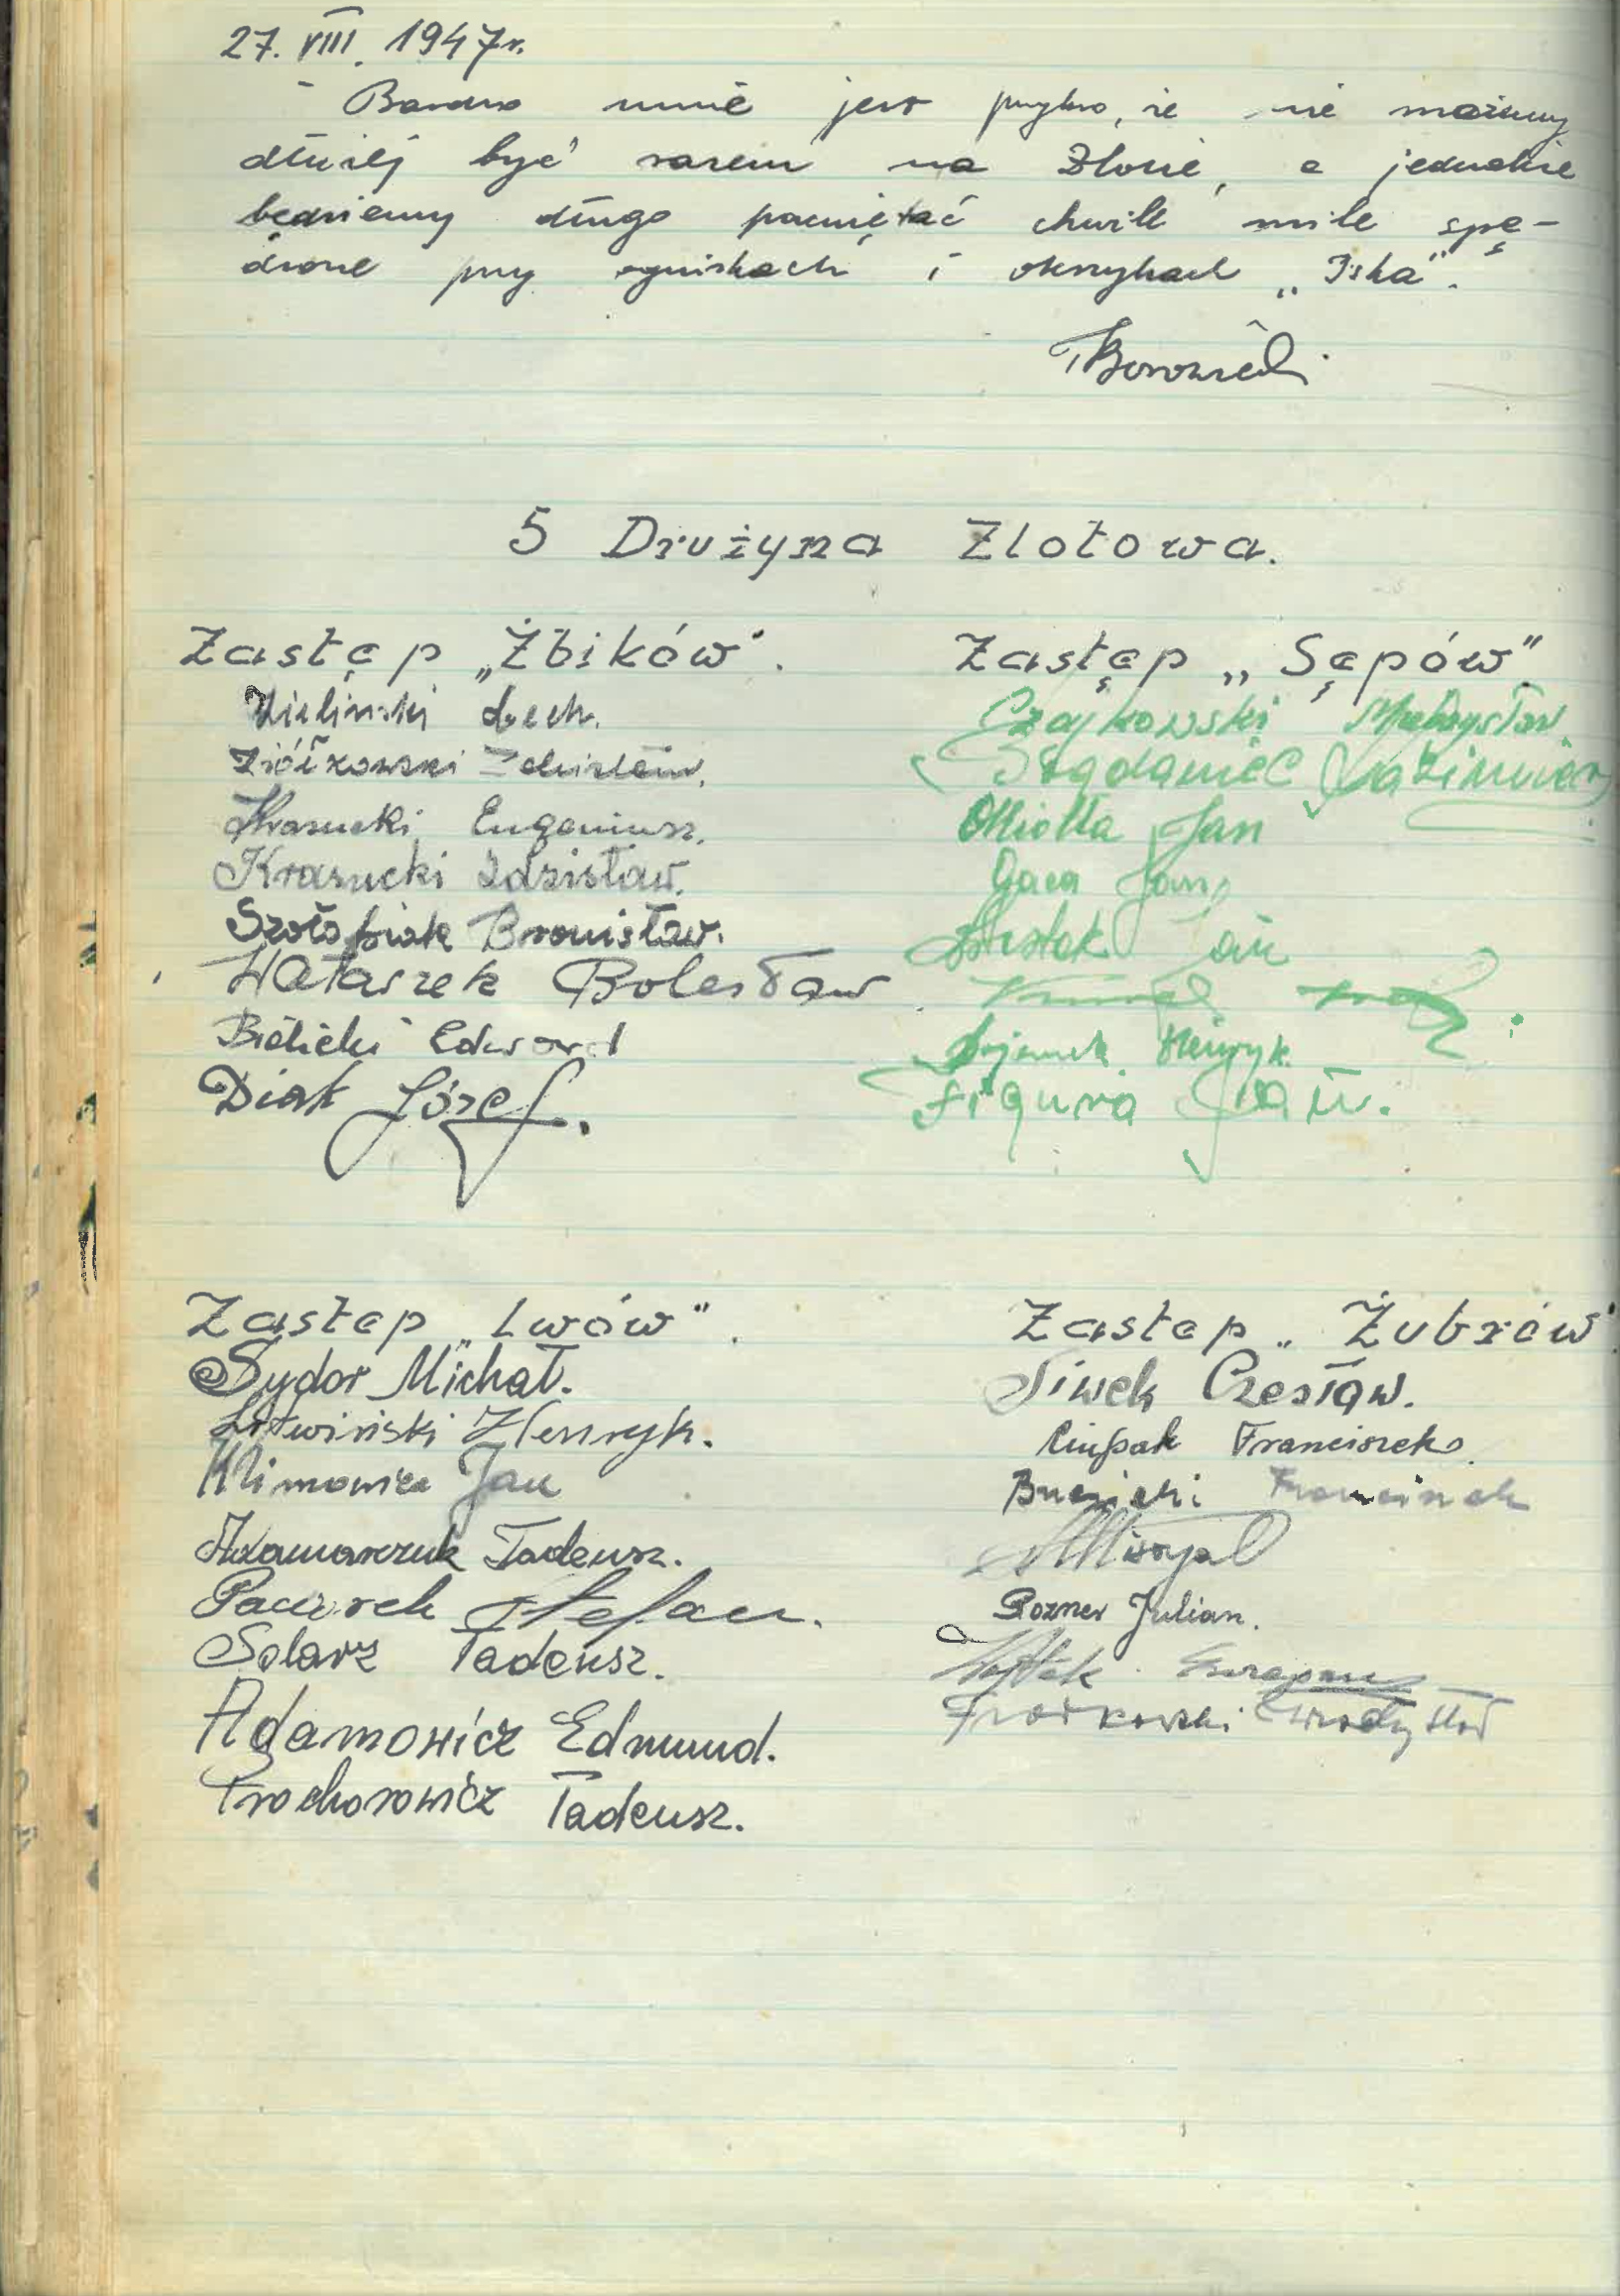 27. VIII. 1947r.
Bardzo mnie jest przykro, że nie możemy
dłużej być razem na Zlocie, a jednakże
będziemy długo pamiętać chwile mile spę-
dzone przy ogniskach i okrzykach „Iska".
5 Drużyna Zlotowa.
Zastęp „Żbików".
Zieliński Lech.
Ziółkowski Zdzisław.
Krasucki Eugeniusz.
Krasucki Zdzisław.
Bronisław.
Wataszek Bolesław
Bielicki Edward
Diak Józef.
Zastęp „Sępów"
Czajkowski Mieczysław.
Bogdaniec Kazimierz
Miotła Jan
Gaca Jan
Jan
Henryk
Figura Jan.
Zastęp „Lwów".
Sydor Michał.
Litwiński Henryk.
Klimowicz Jan
Adamaszuk Tadeusz.
Stefan.
Solarz Tadeusz.
Adamowicz Edmund.
Prochorowicz Tadeusz.
Zastęp „Żubrów"
Siwek Czesław.
Ciupak Franciszek
Franciszek
Pozner Julian.